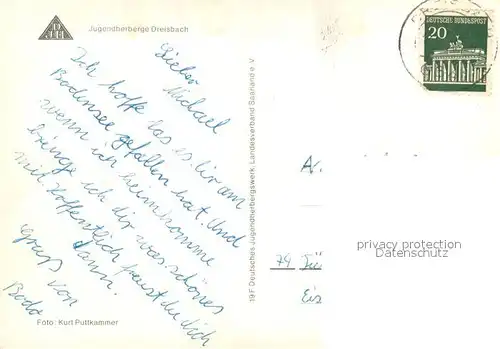 Jugendherberge Dreisbach
Lieber Michael
Ich hoffe das es dir am
Bodensee gefallen hat. Und
wenn ich heimkomme
bringe ich dir was schönes
mit. Hoffentlich freust du dich
dann.
Gruß von
Foto: Kurt Puttkammer
19 F Deutsches Jugendherbergswerk, Landesverband Saarland e.V.
DEUTSCHE BUNDESPOST
20
privacy protection
Datenschutz